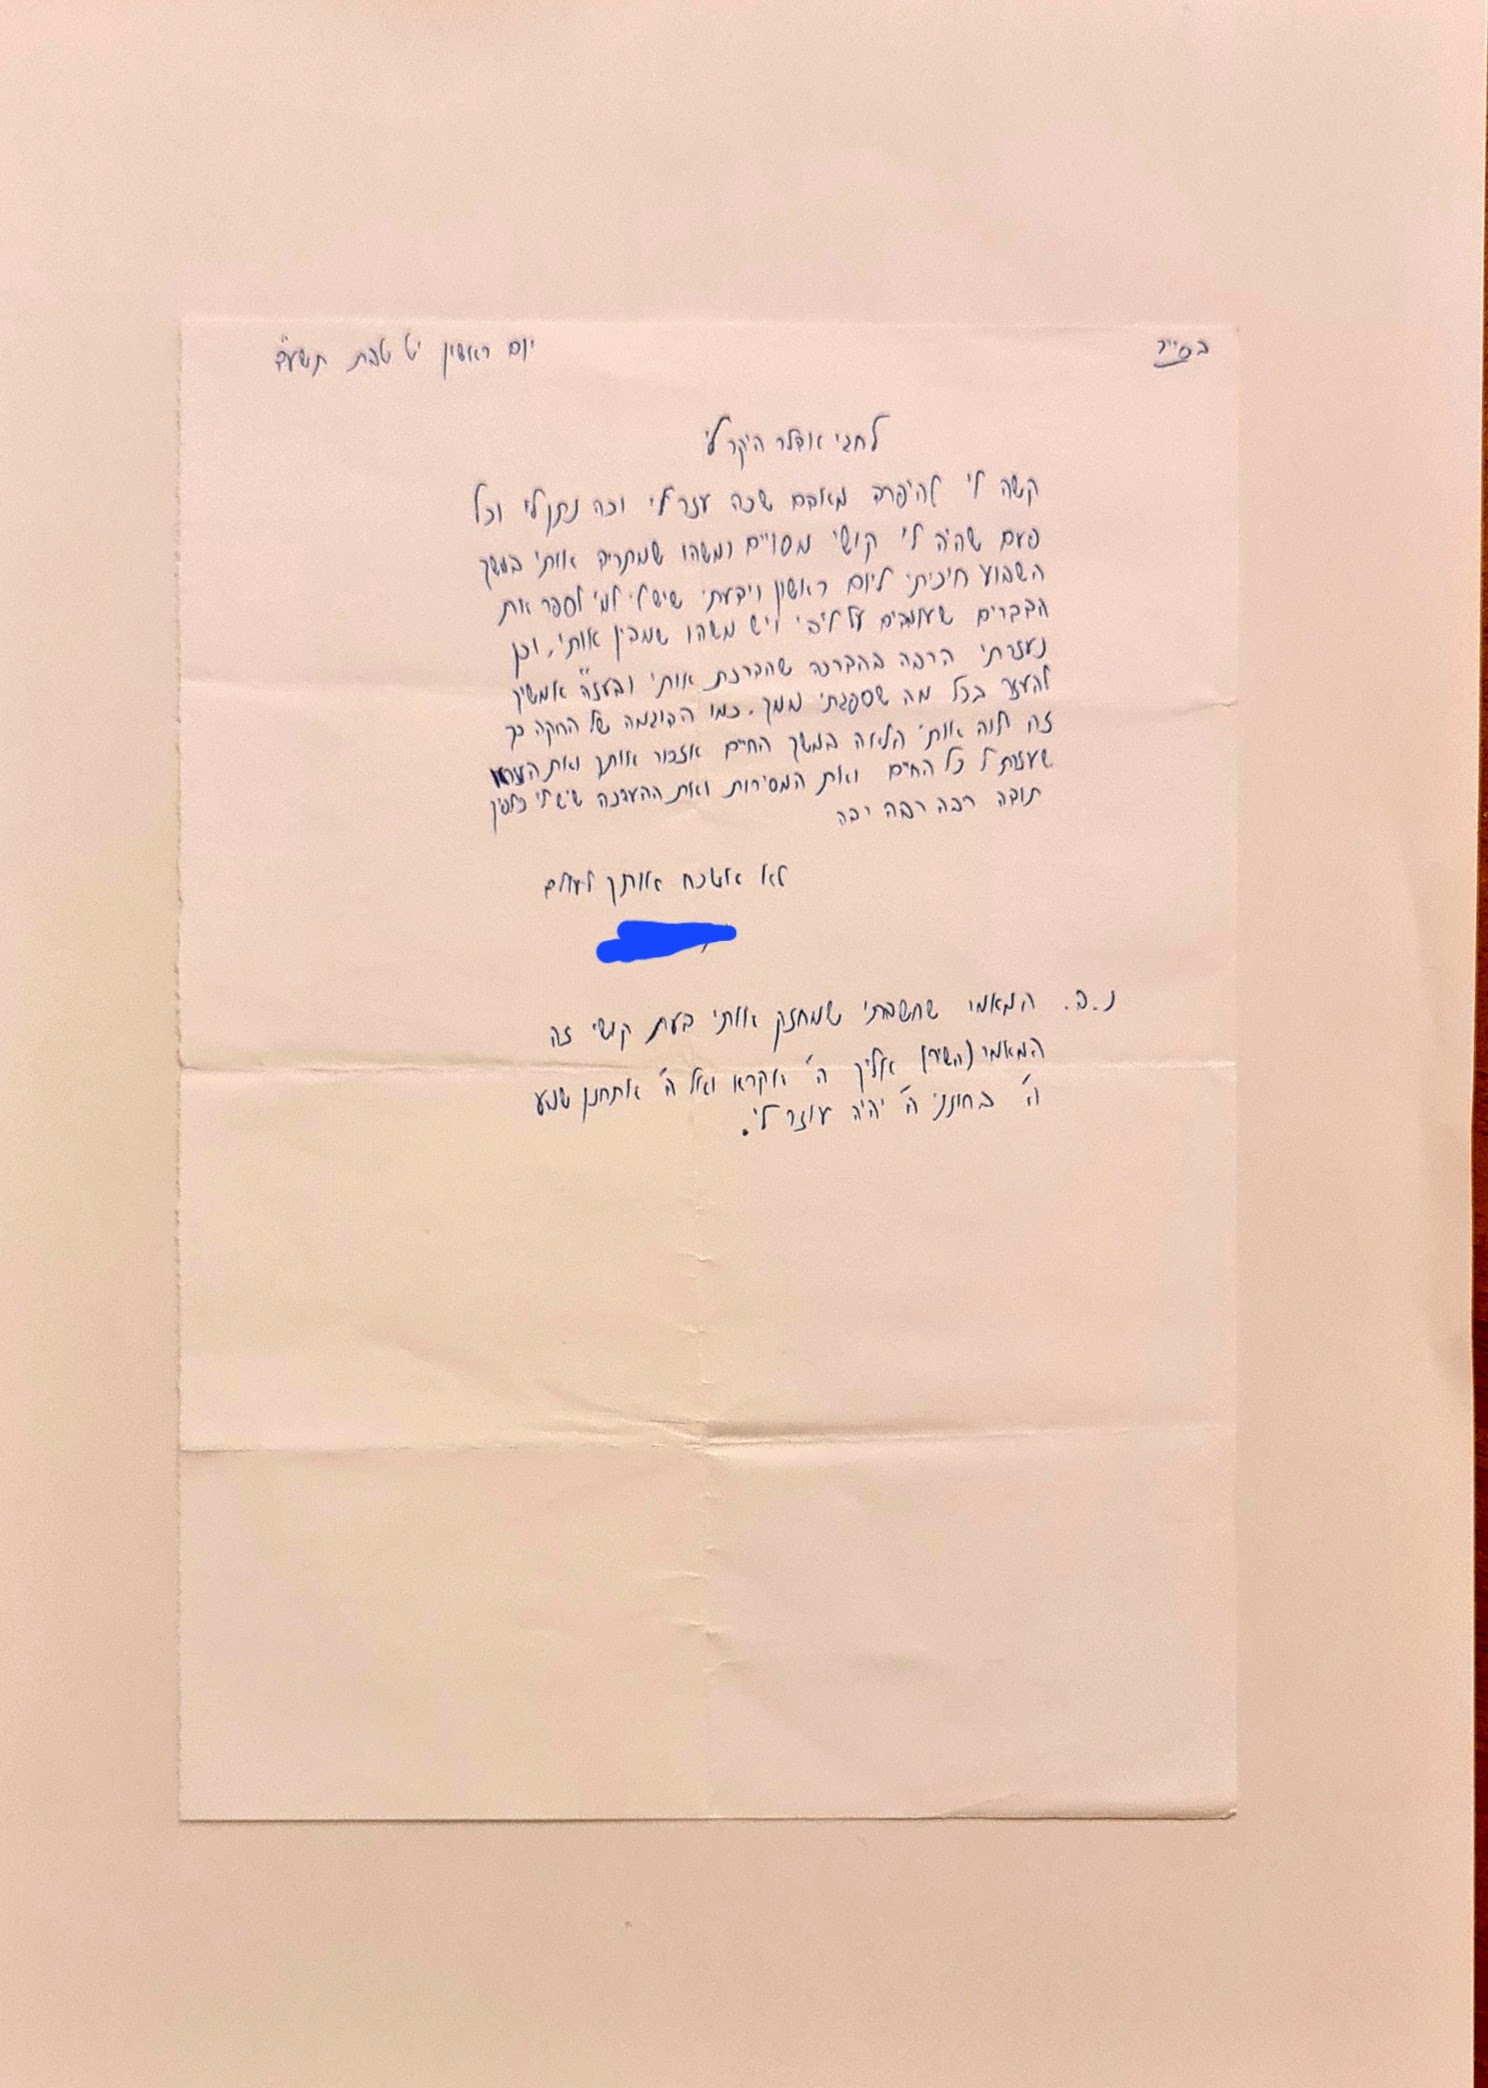 בסייד
יום ראשון יט טבת תשע"ד
לחגי אדלר היקר לי
קשה לי להיפרד מאדם שכה עזר לי וכה נתן לי וכל
פעם שהיה לי קושי מסויים ומשהו שמטריד אותי במשך
השבוע חיכיתי ליום ראשון וידעתי שיש לי למי לספר את
הדברים שעומדים על ליבי ויש משהו שמבין אותי, וכן
נעזרתי הרבה בהדרכה שהדרכת אותי ובעז"ה אמשיך
להעזר בכל מה שספגתי ממך. כמו הדוגמה של החקה כך
זה ילוה אותי הלאה במשך החיים אזכור אותך ואת העזרה
שעזרת ל כל החיים ואת המסירות ואת ההערכה שיש לי כלפיך
תודה רבה רבה רבה
לא אשכח אותך לעולם
נ.ב. המאמר שחשבתי שמחזק אותי בעת קושי זה
המאמר (השיר) אליך ה' אקרא ואל ה' אתחנן שמע
ה' בחונני ה' יהיה עוזר לי.